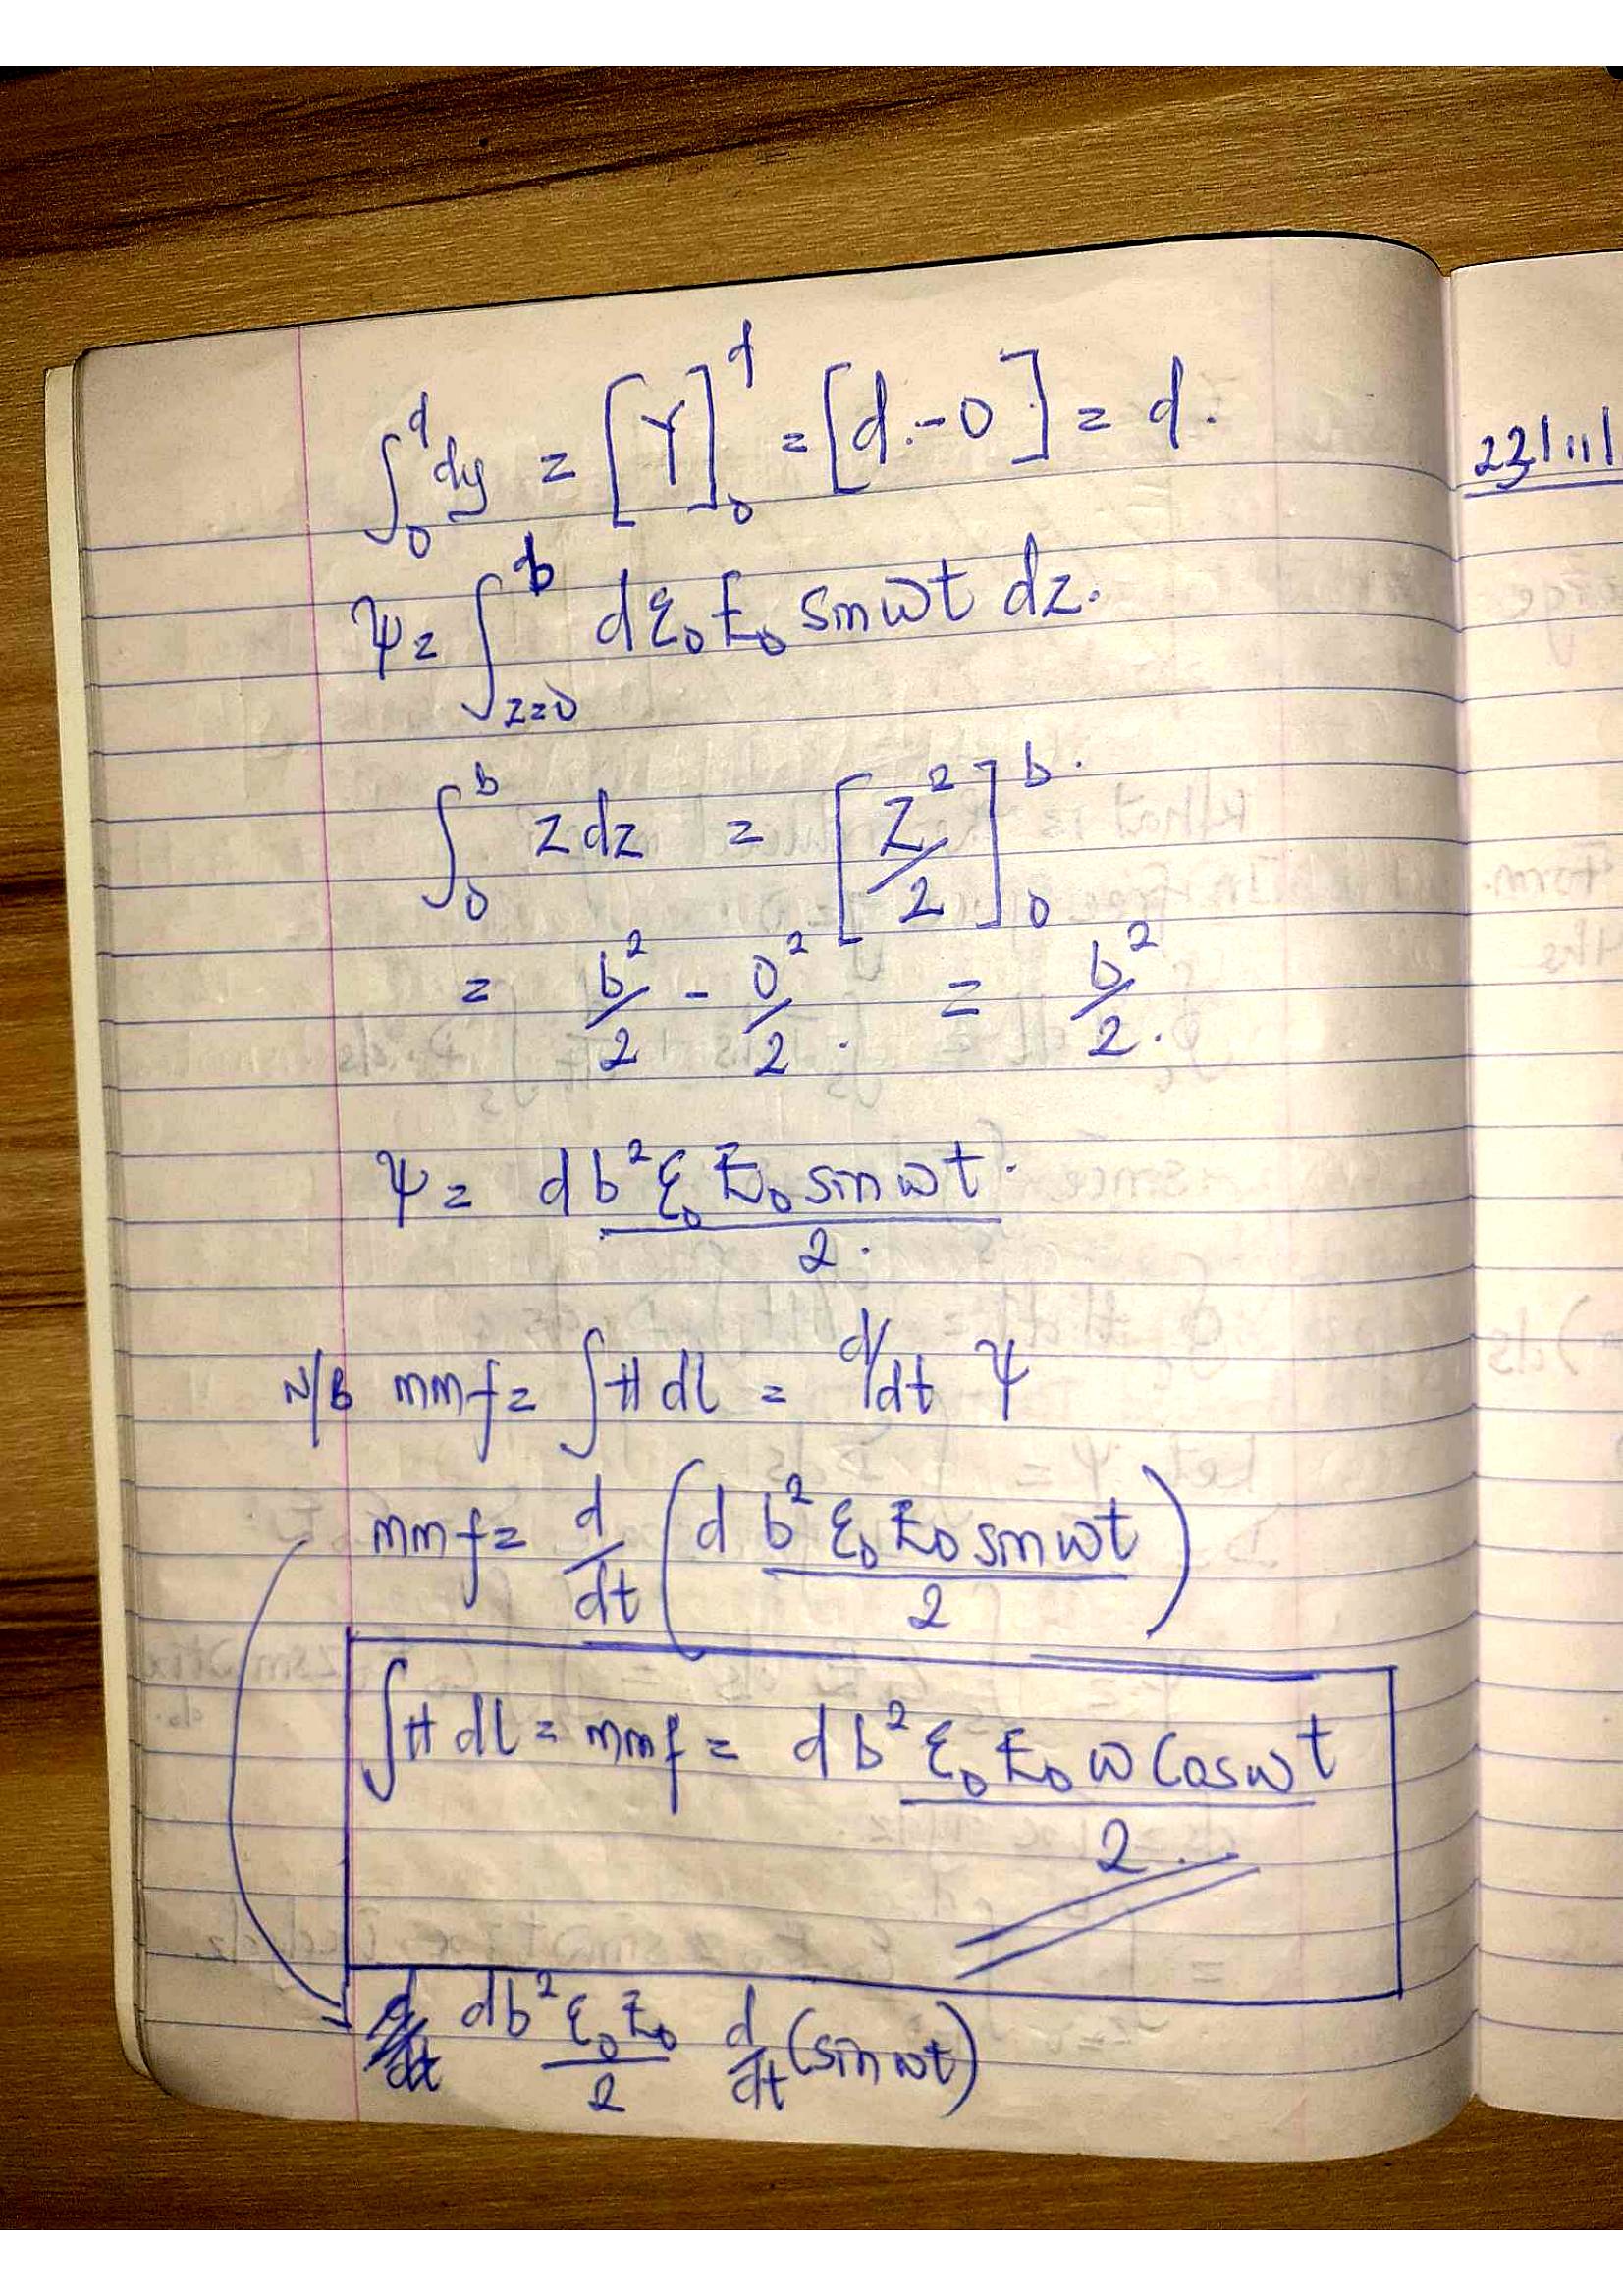 ∫₀ᵈ dy = [Y]₀ᵈ = [d - 0] = d.
Ψ = ∫_{z=0}^{b} dε₀E₀ sinωt dz.
∫₀ᵇ z dz = [z²/2]₀ᵇ.
= b²/2 - 0²/2. = b²/2.
Ψ = db²ε₀E₀ sinωt. / 2.
N/B mmf = ∫H dl = d/dt Ψ
mmf = d/dt (d b² ε₀E₀ sinωt / 2)
∫H dl = mmf = d b² ε₀ E₀ ω Cosωt / 2.
db² ε₀E₀ / 2 d/dt (sin ωt)
23/11/